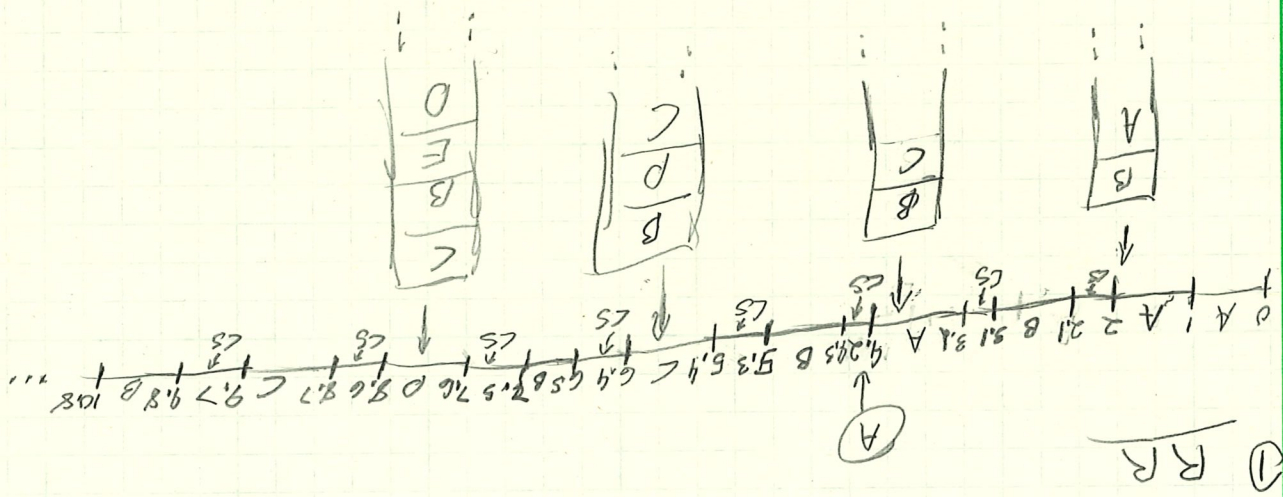 ① RR
A
0 A 1 A 2 2,1 B 3,1 3,2 A 4,2 4,3 B 5,3 5,4 C 6,4 6,5 B 7,5 7,6 D 8,6 8,7 C 9,7 9,8 B 10,8 ...
CS CS CS CS CS CS CS CS
B
A
B
C
B
D
C
C
B
E
D